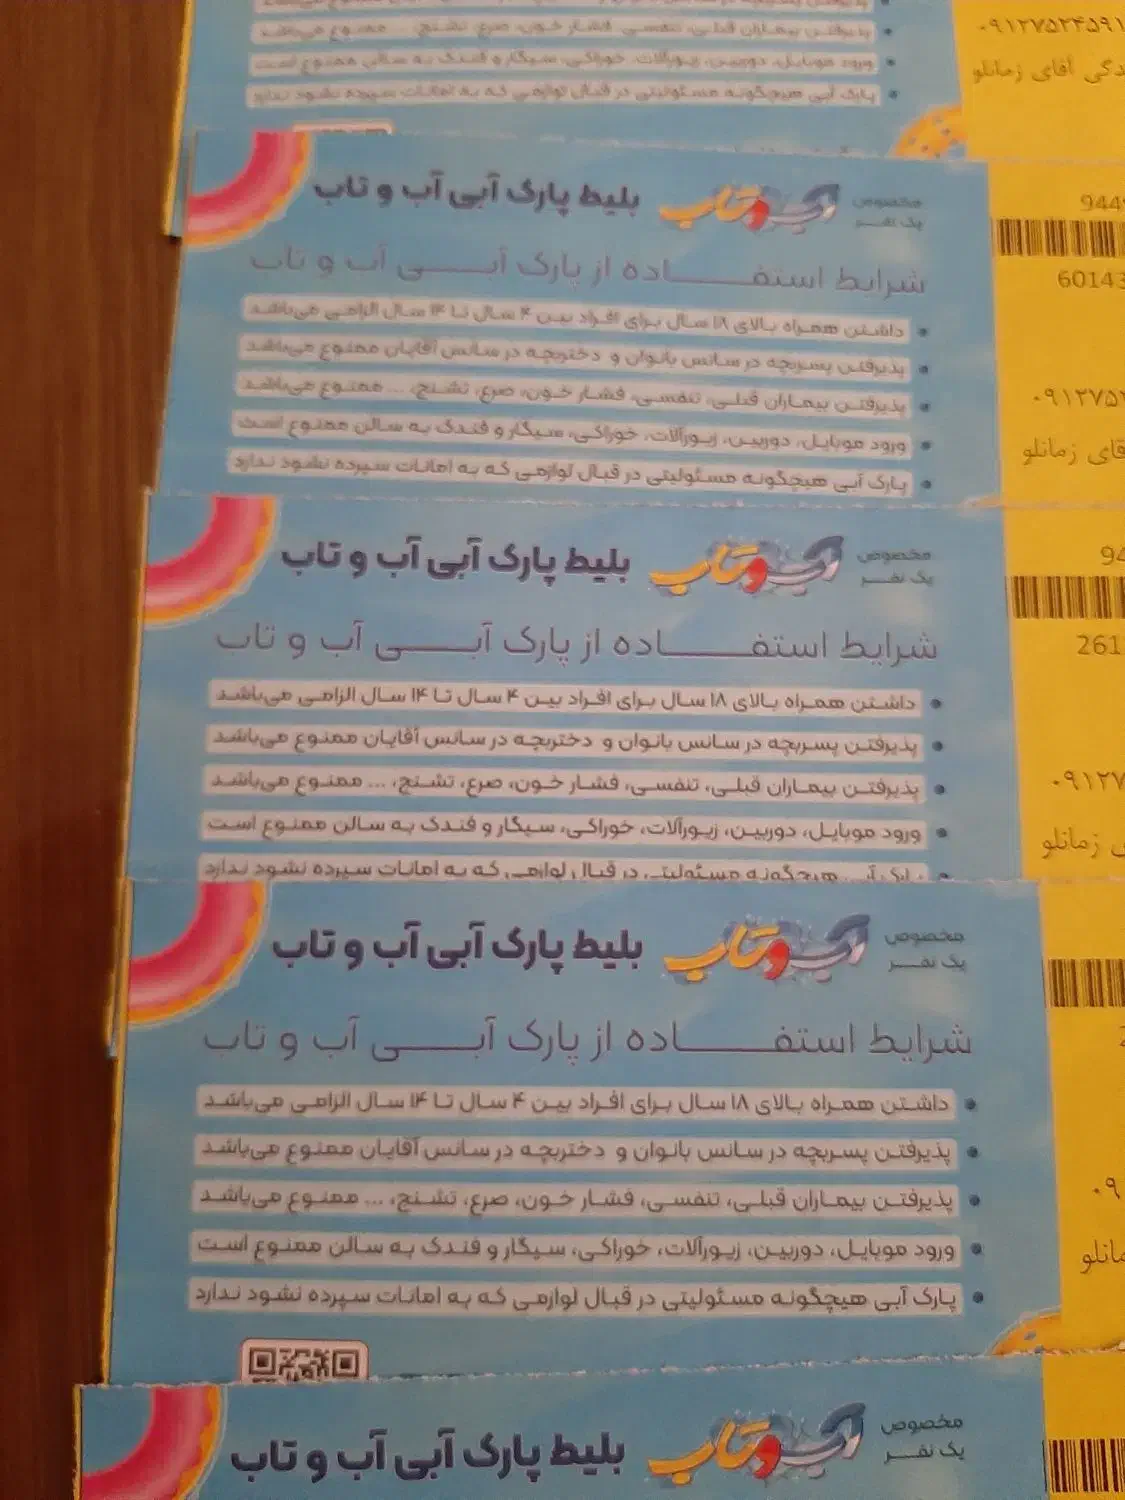 پذیرفتن بیماران قبلی، تنفسی، فشار خون، صرع، تشنج، ... ممنوع می‌باشد
ورود موبایل، دوربین، زیورآلات، خوراکی، سیگار و فندک به سالن ممنوع است
پارک آبی هیچگونه مسئولیتی در قبال لوازمی که به امانات سپرده نشود ندارد
۰۹۱۲۷۵۲۴۵۹۱
آقای زمانلو
بلیط پارک آبی آب و تاب
آب و تاب
مخصوص
یک نفـر
شرایط استفـــاده از پارک آبـــی آب و تاب
داشتن همراه بالای ۱۸ سال برای افراد بین ۴ سال تا ۱۴ سال الزامی می‌باشد
پذیرفتن پسربچه در سانس بانوان و دختربچه در سانس آقایان ممنوع می‌باشد
پذیرفتن بیماران قبلی، تنفسی، فشار خون، صرع، تشنج، ... ممنوع می‌باشد
ورود موبایل، دوربین، زیورآلات، خوراکی، سیگار و فندک به سالن ممنوع است
پارک آبی هیچگونه مسئولیتی در قبال لوازمی که به امانات سپرده نشود ندارد
944
60143
۰۹۱۲۷۵۲
زمانلو
بلیط پارک آبی آب و تاب
آب و تاب
مخصوص
یک نفـر
شرایط استفـــاده از پارک آبـــی آب و تاب
داشتن همراه بالای ۱۸ سال برای افراد بین ۴ سال تا ۱۴ سال الزامی می‌باشد
پذیرفتن پسربچه در سانس بانوان و دختربچه در سانس آقایان ممنوع می‌باشد
پذیرفتن بیماران قبلی، تنفسی، فشار خون، صرع، تشنج، ... ممنوع می‌باشد
ورود موبایل، دوربین، زیورآلات، خوراکی، سیگار و فندک به سالن ممنوع است
پارک آبی هیچگونه مسئولیتی در قبال لوازمی که به امانات سپرده نشود ندارد
94
261
۰۹۱۲۷
زمانلو
بلیط پارک آبی آب و تاب
آب و تاب
مخصوص
یک نفـر
شرایط استفـــاده از پارک آبـــی آب و تاب
داشتن همراه بالای ۱۸ سال برای افراد بین ۴ سال تا ۱۴ سال الزامی می‌باشد
پذیرفتن پسربچه در سانس بانوان و دختربچه در سانس آقایان ممنوع می‌باشد
پذیرفتن بیماران قبلی، تنفسی، فشار خون، صرع، تشنج، ... ممنوع می‌باشد
ورود موبایل، دوربین، زیورآلات، خوراکی، سیگار و فندک به سالن ممنوع است
پارک آبی هیچگونه مسئولیتی در قبال لوازمی که به امانات سپرده نشود ندارد
۰۹
بلیط پارک آبی آب و تاب
آب و تاب
مخصوص
یک نفـر